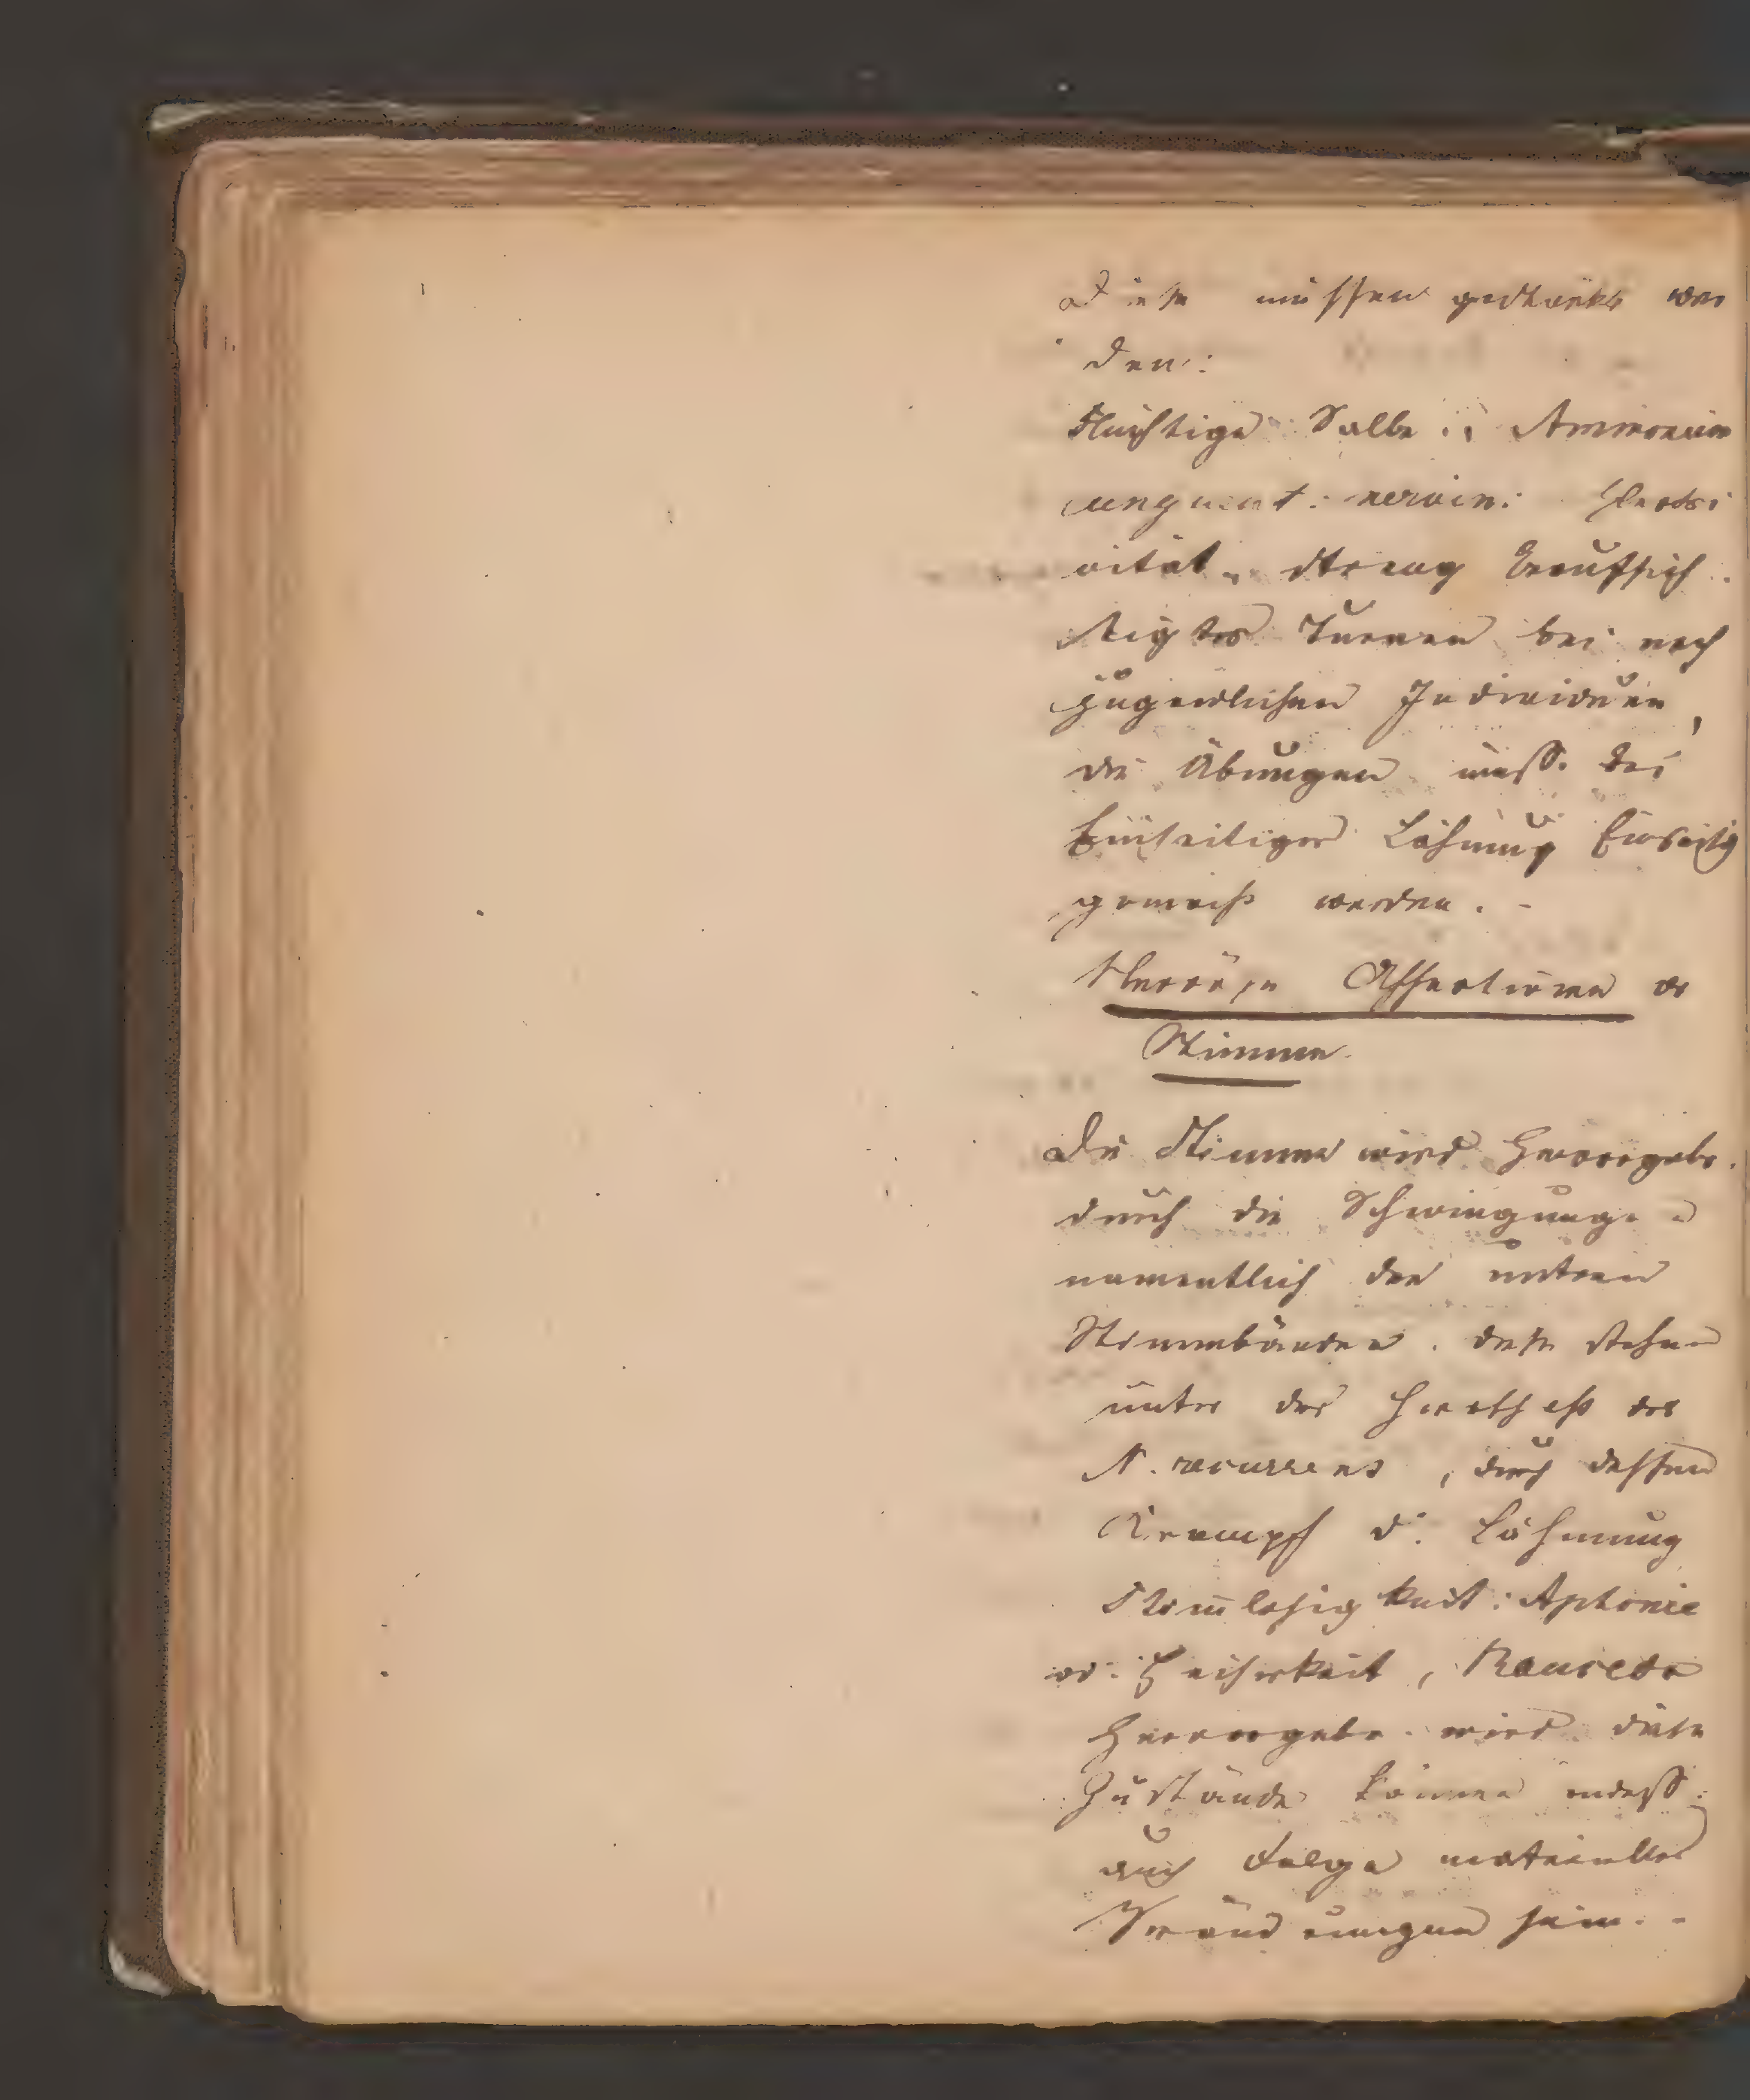 Diese müssen gestärkt wer
den:
Flüchtige Salbe, Ammonium
unguent: nervin: Electri
cität, streng beaufsich
tigtes Turnen bei noch
jugendlichen Individuen,
die Übungen müss. bei
Einseitiger Lähmung Einseitig
gemacht werden. -
Nervöse Affectionen der
Stimme.
Die Stimme wird hervorgebr.
durch die Schwingungen
namentlich der unteren
Stimmbänder. diese stehen
unter der des
N. recurrens, durch dessen
Krampf od. Lähmung
Stimlosigkeit: Aphonie
od: Heiserkeit, Raucedo
hervorgebr. wird. diese
Zustände können indess.
auch Folge materieller
Veränderungen sein. -